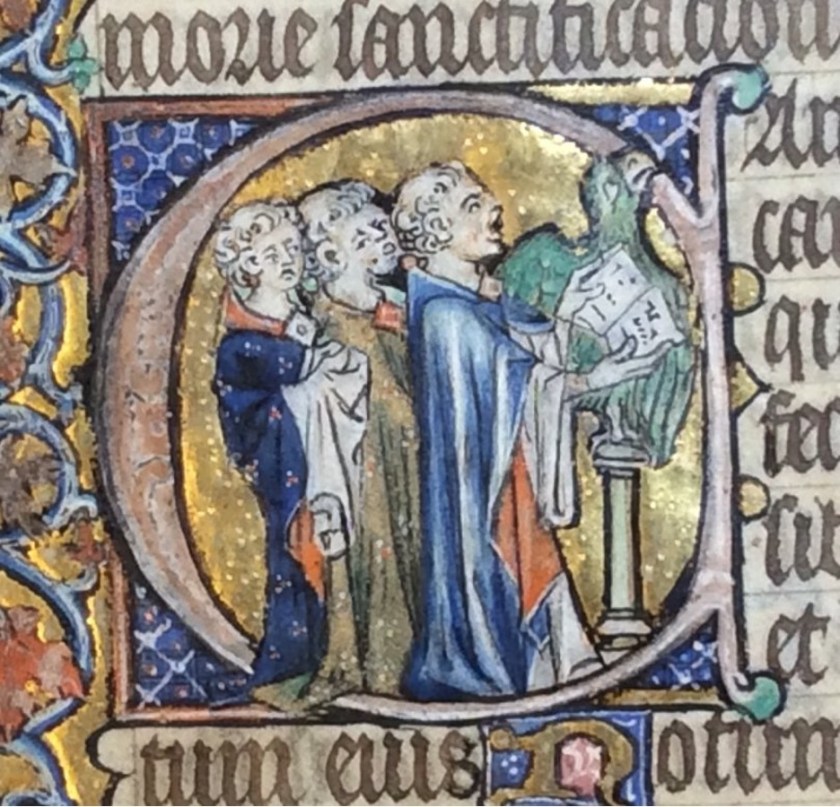 morie sanctificacion
CAn
can
qu
fec
sib
et
tum eius Notum